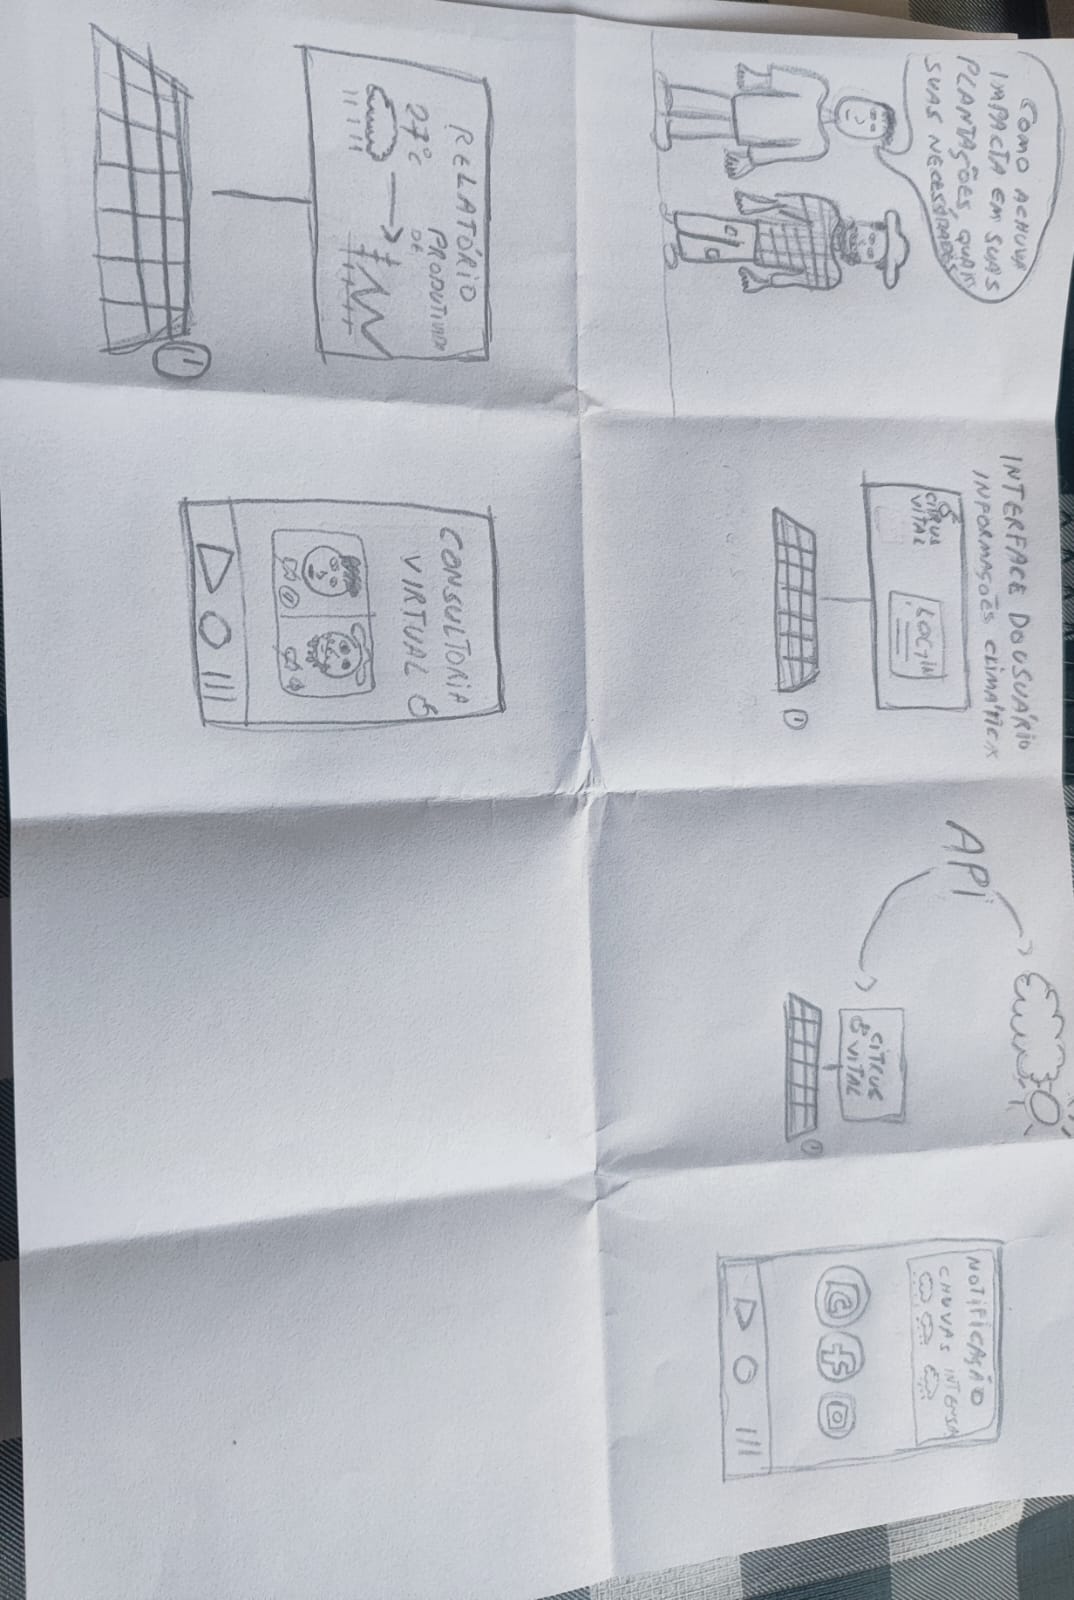 COMO A CHUVA
IMPACTA EM SUAS
PLANTAÇÕES, QUAIS
SUAS NECESSIDADES
INTERFACE DO USUÁRIO
INFORMAÇÕES CLIMÁTICA
CITRUS
VITAL
LOGIN
API
CITRUS
VITAL
NOTIFICAÇÃO
CHUVAS INTENSA
RELATÓRIO
DE
PRODUTIVIDA
27°C
CONSULTORIA
VIRTUAL